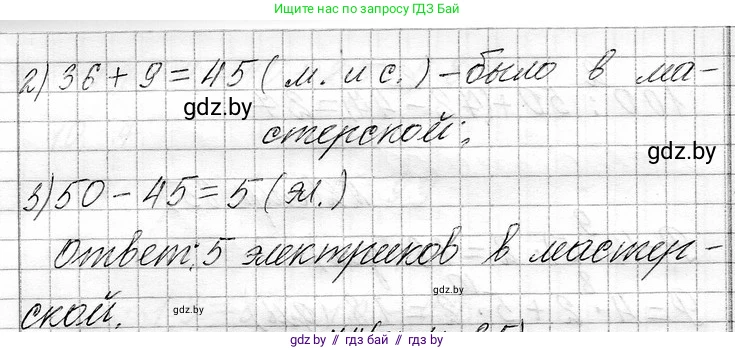 Ищите нас по запросу ГДЗ Бай
2) 36 + 9 = 45 ( м. и с. ) - было в ма-
gdz.by
стерской;
gdz.by
3) 50 - 45 = 5 ( эл. )
Ответ: 5 электриков в мастер-
ской.
gdz.by
gdz.by
gdz.by // гдз бай // gdz.by